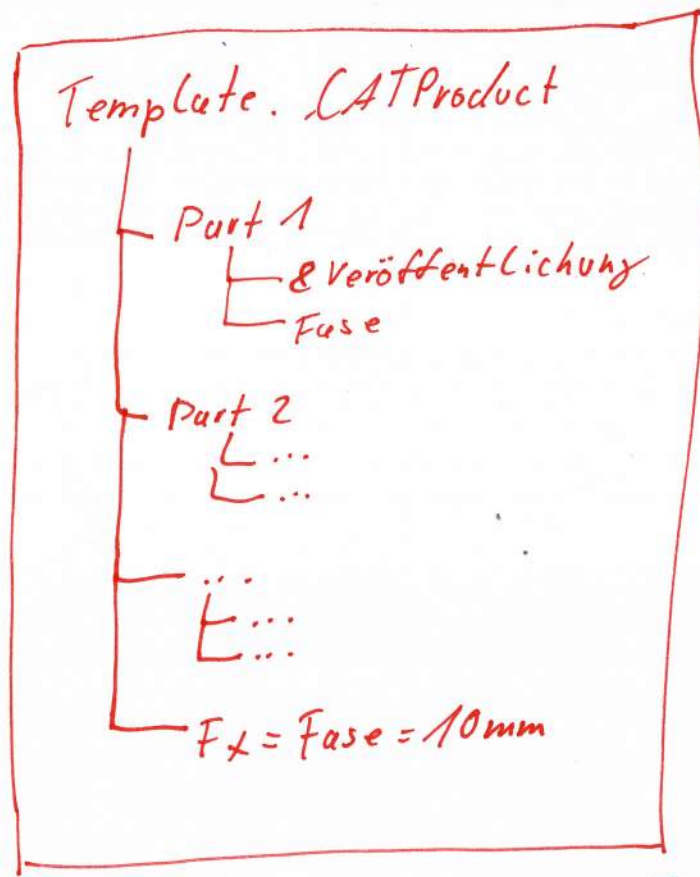 Template. CATProduct
Part 1
& Veröffentlichung
Fase
Part 2
...
...
...
...
...
Fx = Fase = 10mm